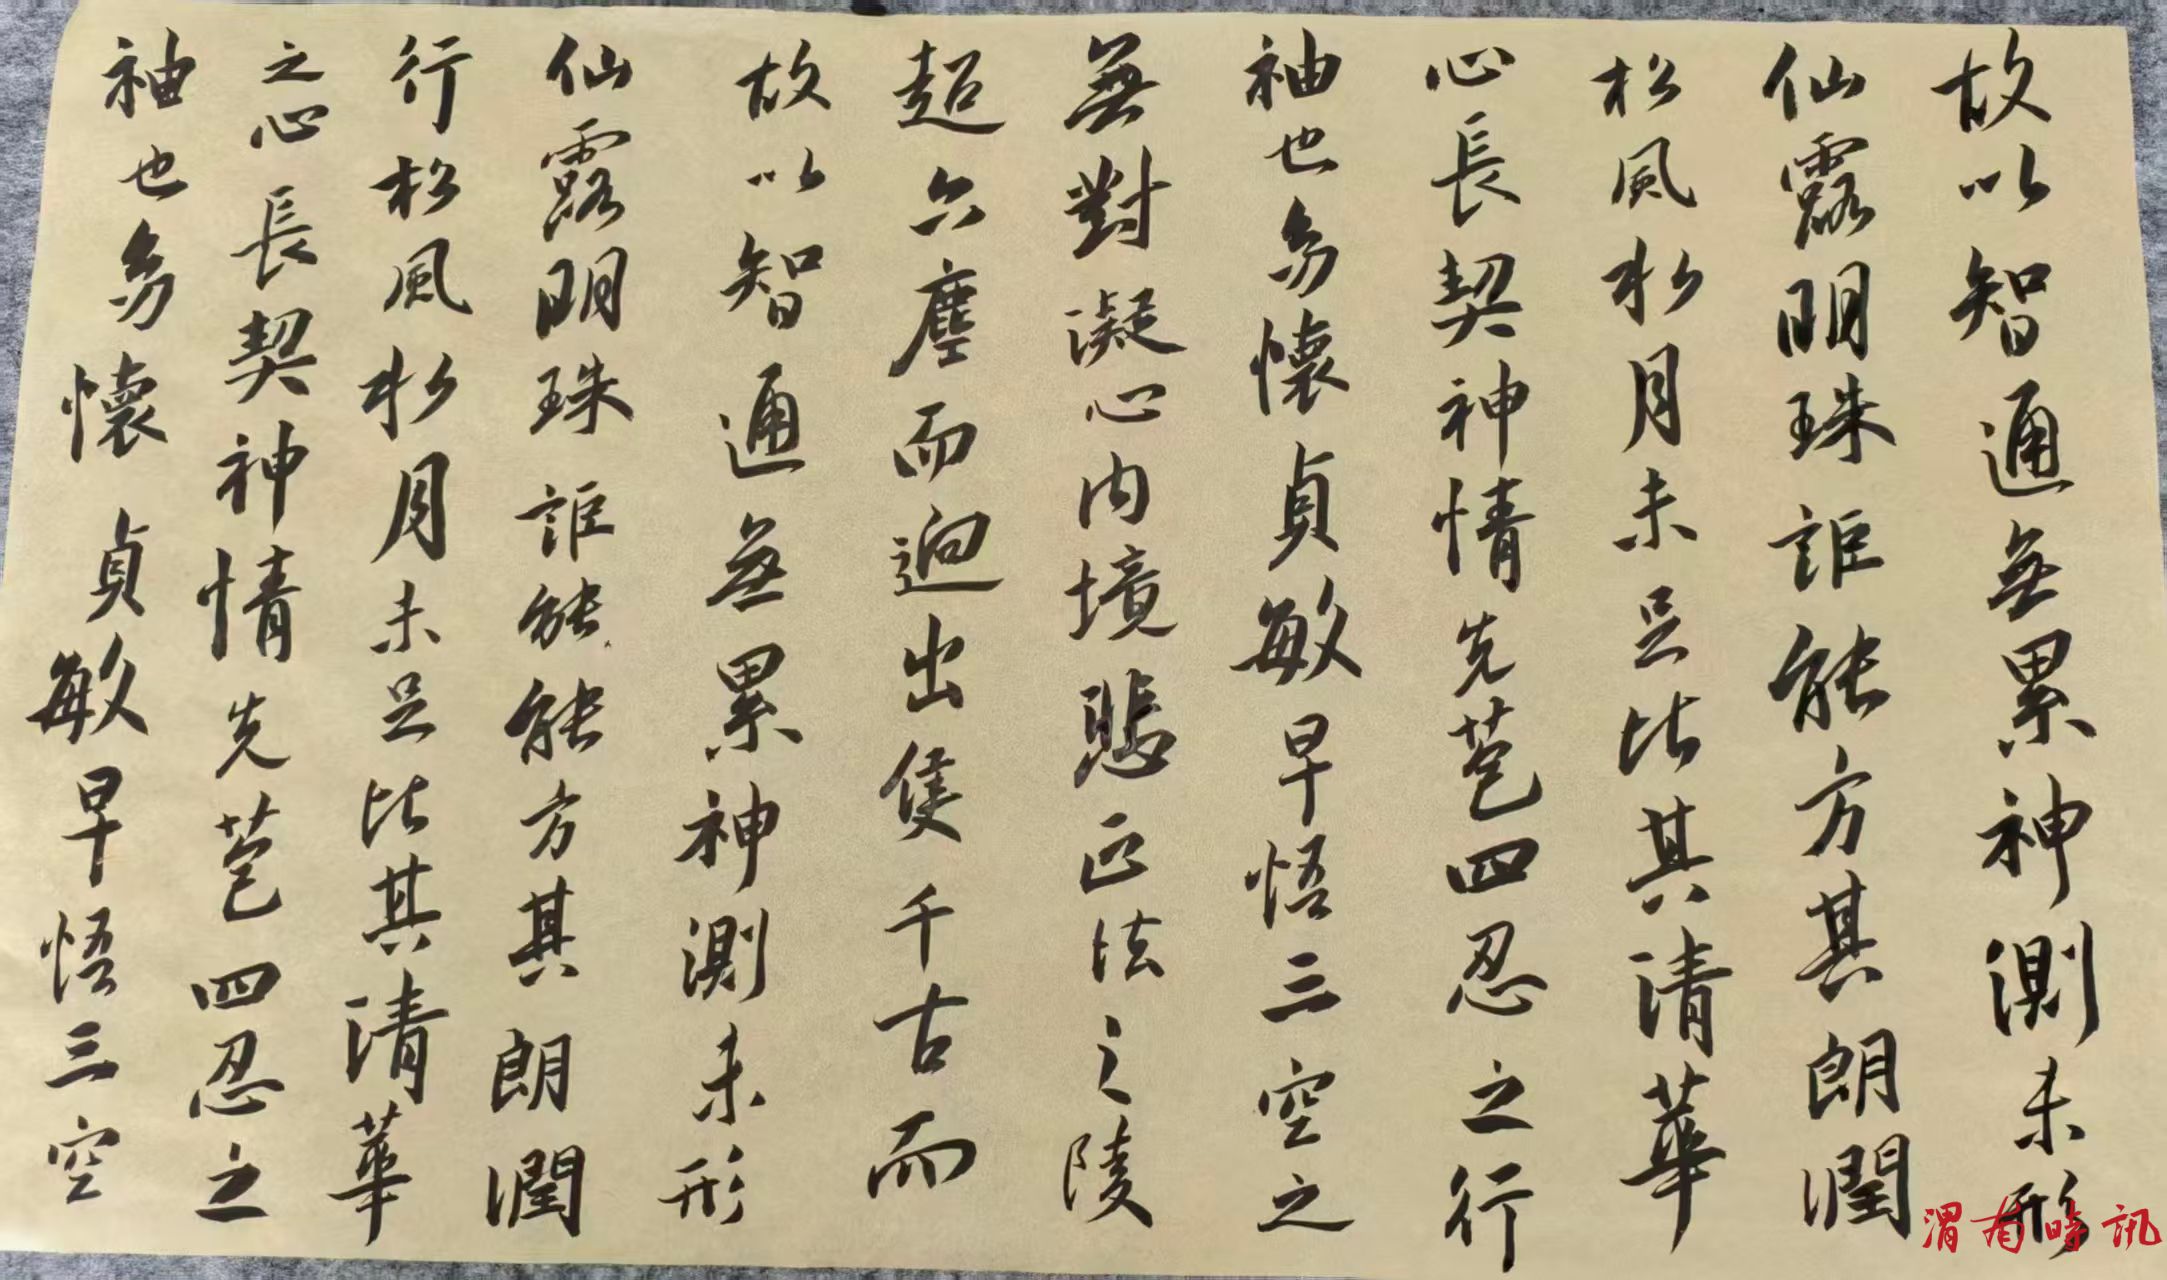 故以智通無累神測未形
仙露明珠詎能方其朗潤
松風水月未足比其清華
心長契神情先苞四忍之行
袖也幼懷貞敏早悟三空之
無對凝心内境悲正法之陵
超六塵而迥出隻千古而
故以智通無累神測未形
仙露明珠詎能能方其朗潤
行松風水月未足比其清華
之心長契神情先苞四忍之
袖也幼懷貞敏早悟三空
渭南時讯